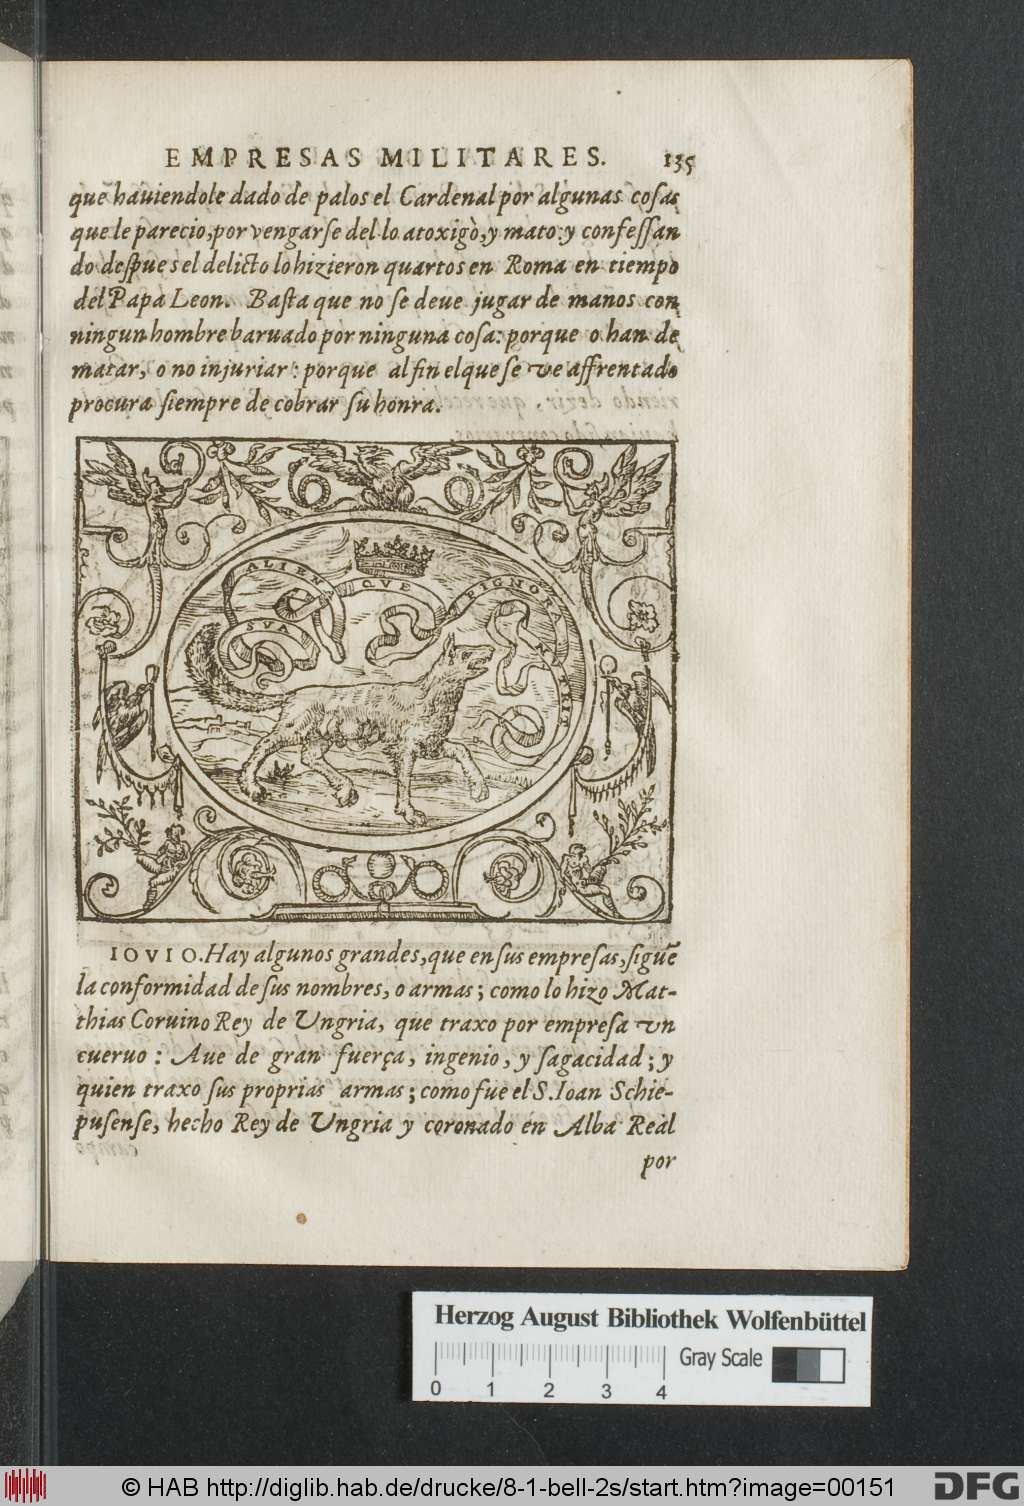 EMPRESAS MILITARES. 135
quē haviendole dado de palos el Cardenal por algunas cosas
que le parecio, por vengarse del lo atoxigò, y mato: y confessan
do despues el delicto lo hizieron quartos en Roma en tiempo
del Papa Leon. Basta que no se deue jugar de manos con
ningun hombre baruado por ninguna cosa: porque o han de
matar, o no injuriar: porque al fin el que se ve affrentado
procura siempre de cobrar su honra.
SVA ALIENA QVE PIGNORA NVTRIT
IOVIO. Hay algunos grandes, que en sus empresas, siguē
la conformidad de sus nombres, o armas; como lo hizo Mat-
thias Coruino Rey de Ungria, que traxo por empresa vn
cueruo: Aue de gran fuerça, ingenio, y sagacidad; y
quien traxo sus proprias armas; como fue el S. Ioan Schie-
pusense, hecho Rey de Ungria y coronado en Alba Real
por
Herzog August Bibliothek Wolfenbüttel
Gray Scale
0 1 2 3 4
© HAB http://diglib.hab.de/drucke/8-1-bell-2s/start.htm?image=00151
DFG